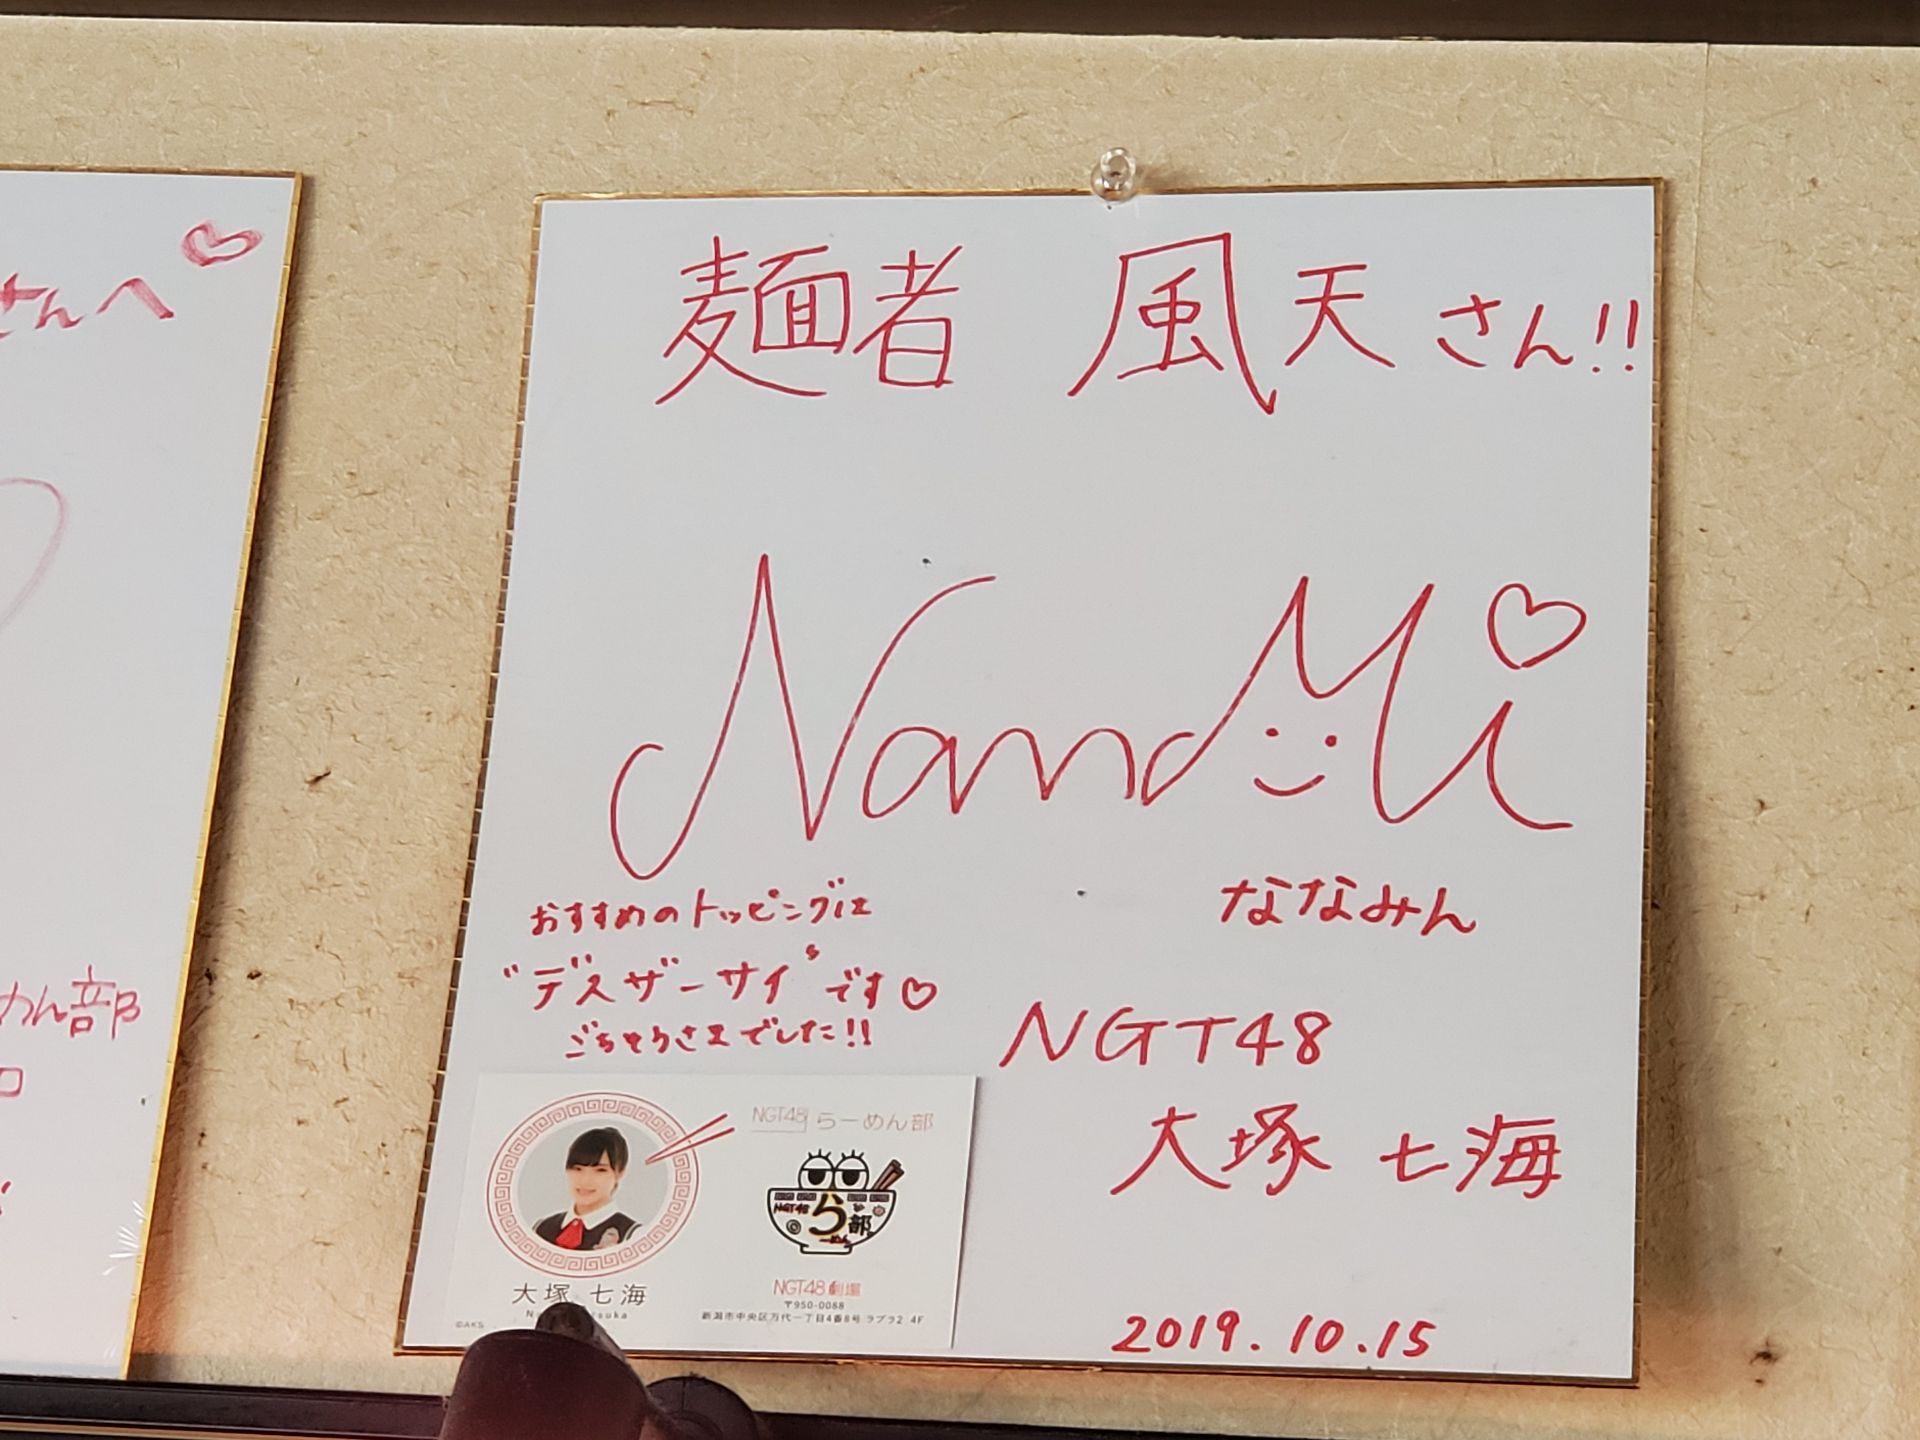 さんへ
めん部
麺者 風天さん!!
NanaMi
ななみん
おすすめのトッピングは
"デスザーサイ"です♡
ごちそうさまでした!!
NGT48
大塚 七海
2019.10.15
NGT48 らーめん部
NGT48
らーめん部
大塚 七海
©AKS
NGT48劇場
〒950-0088
新潟市中央区万代一丁目4番8号 ラブラ2 4F